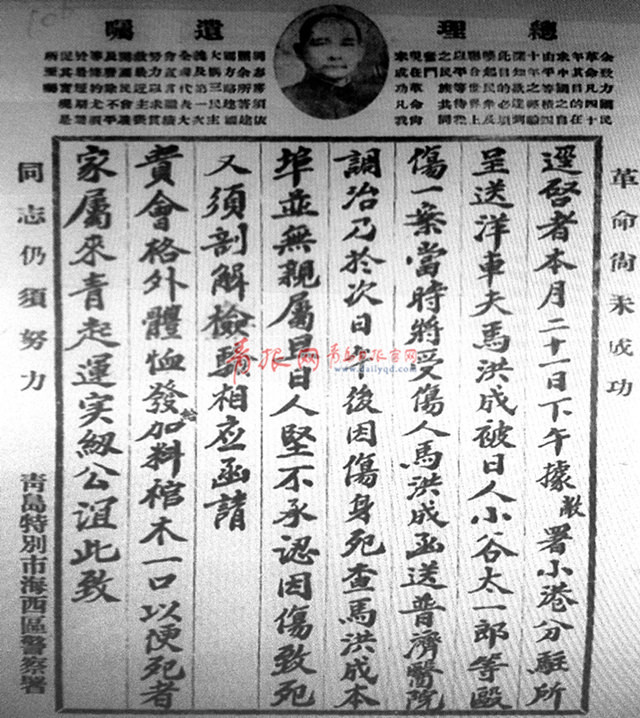 總理遺囑
余致力國民
革命凡四十
年其目的在
求中國之自
由平等積四
十年之經驗
深知欲達到
此目的必須
喚起民眾及
聯合世界上
以平等待我
之民族共同
奮鬥
現在革命尚
未成功凡我
同志務須依
照余所著建
國方略建國
大綱三民主
義及第一次
全國代表大
會宣言繼續
努力以求貫
徹最近主張
開國民會議
及廢除不平
等條約尤須
於最短期間
促其實現是
所至囑
革命尚未成功
逕啓者本月二十一日下午據敝署小港分駐所
呈送洋車夫馬洪成被日人小谷太一郎等毆
傷一案當時將受傷人馬洪成函送普濟醫院
調治乃於次日午後因傷身死查馬洪成本
埠並無親屬且日人堅不承認因傷致死
又須剖解檢驗相应函請
貴會格外體恤發給加料棺木一口以便死者
家屬來青起運实紉公誼此致
同志仍須努力
青島特別市海西區警察署
青报网
青岛日报官网
www.dailyqd.com